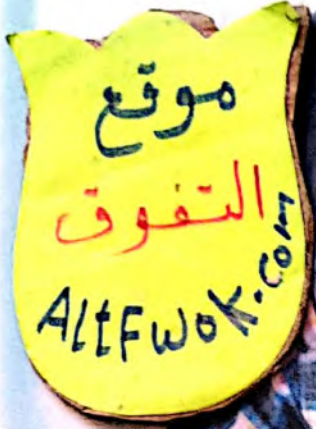 موقع
التفوق
AltFwoK.com